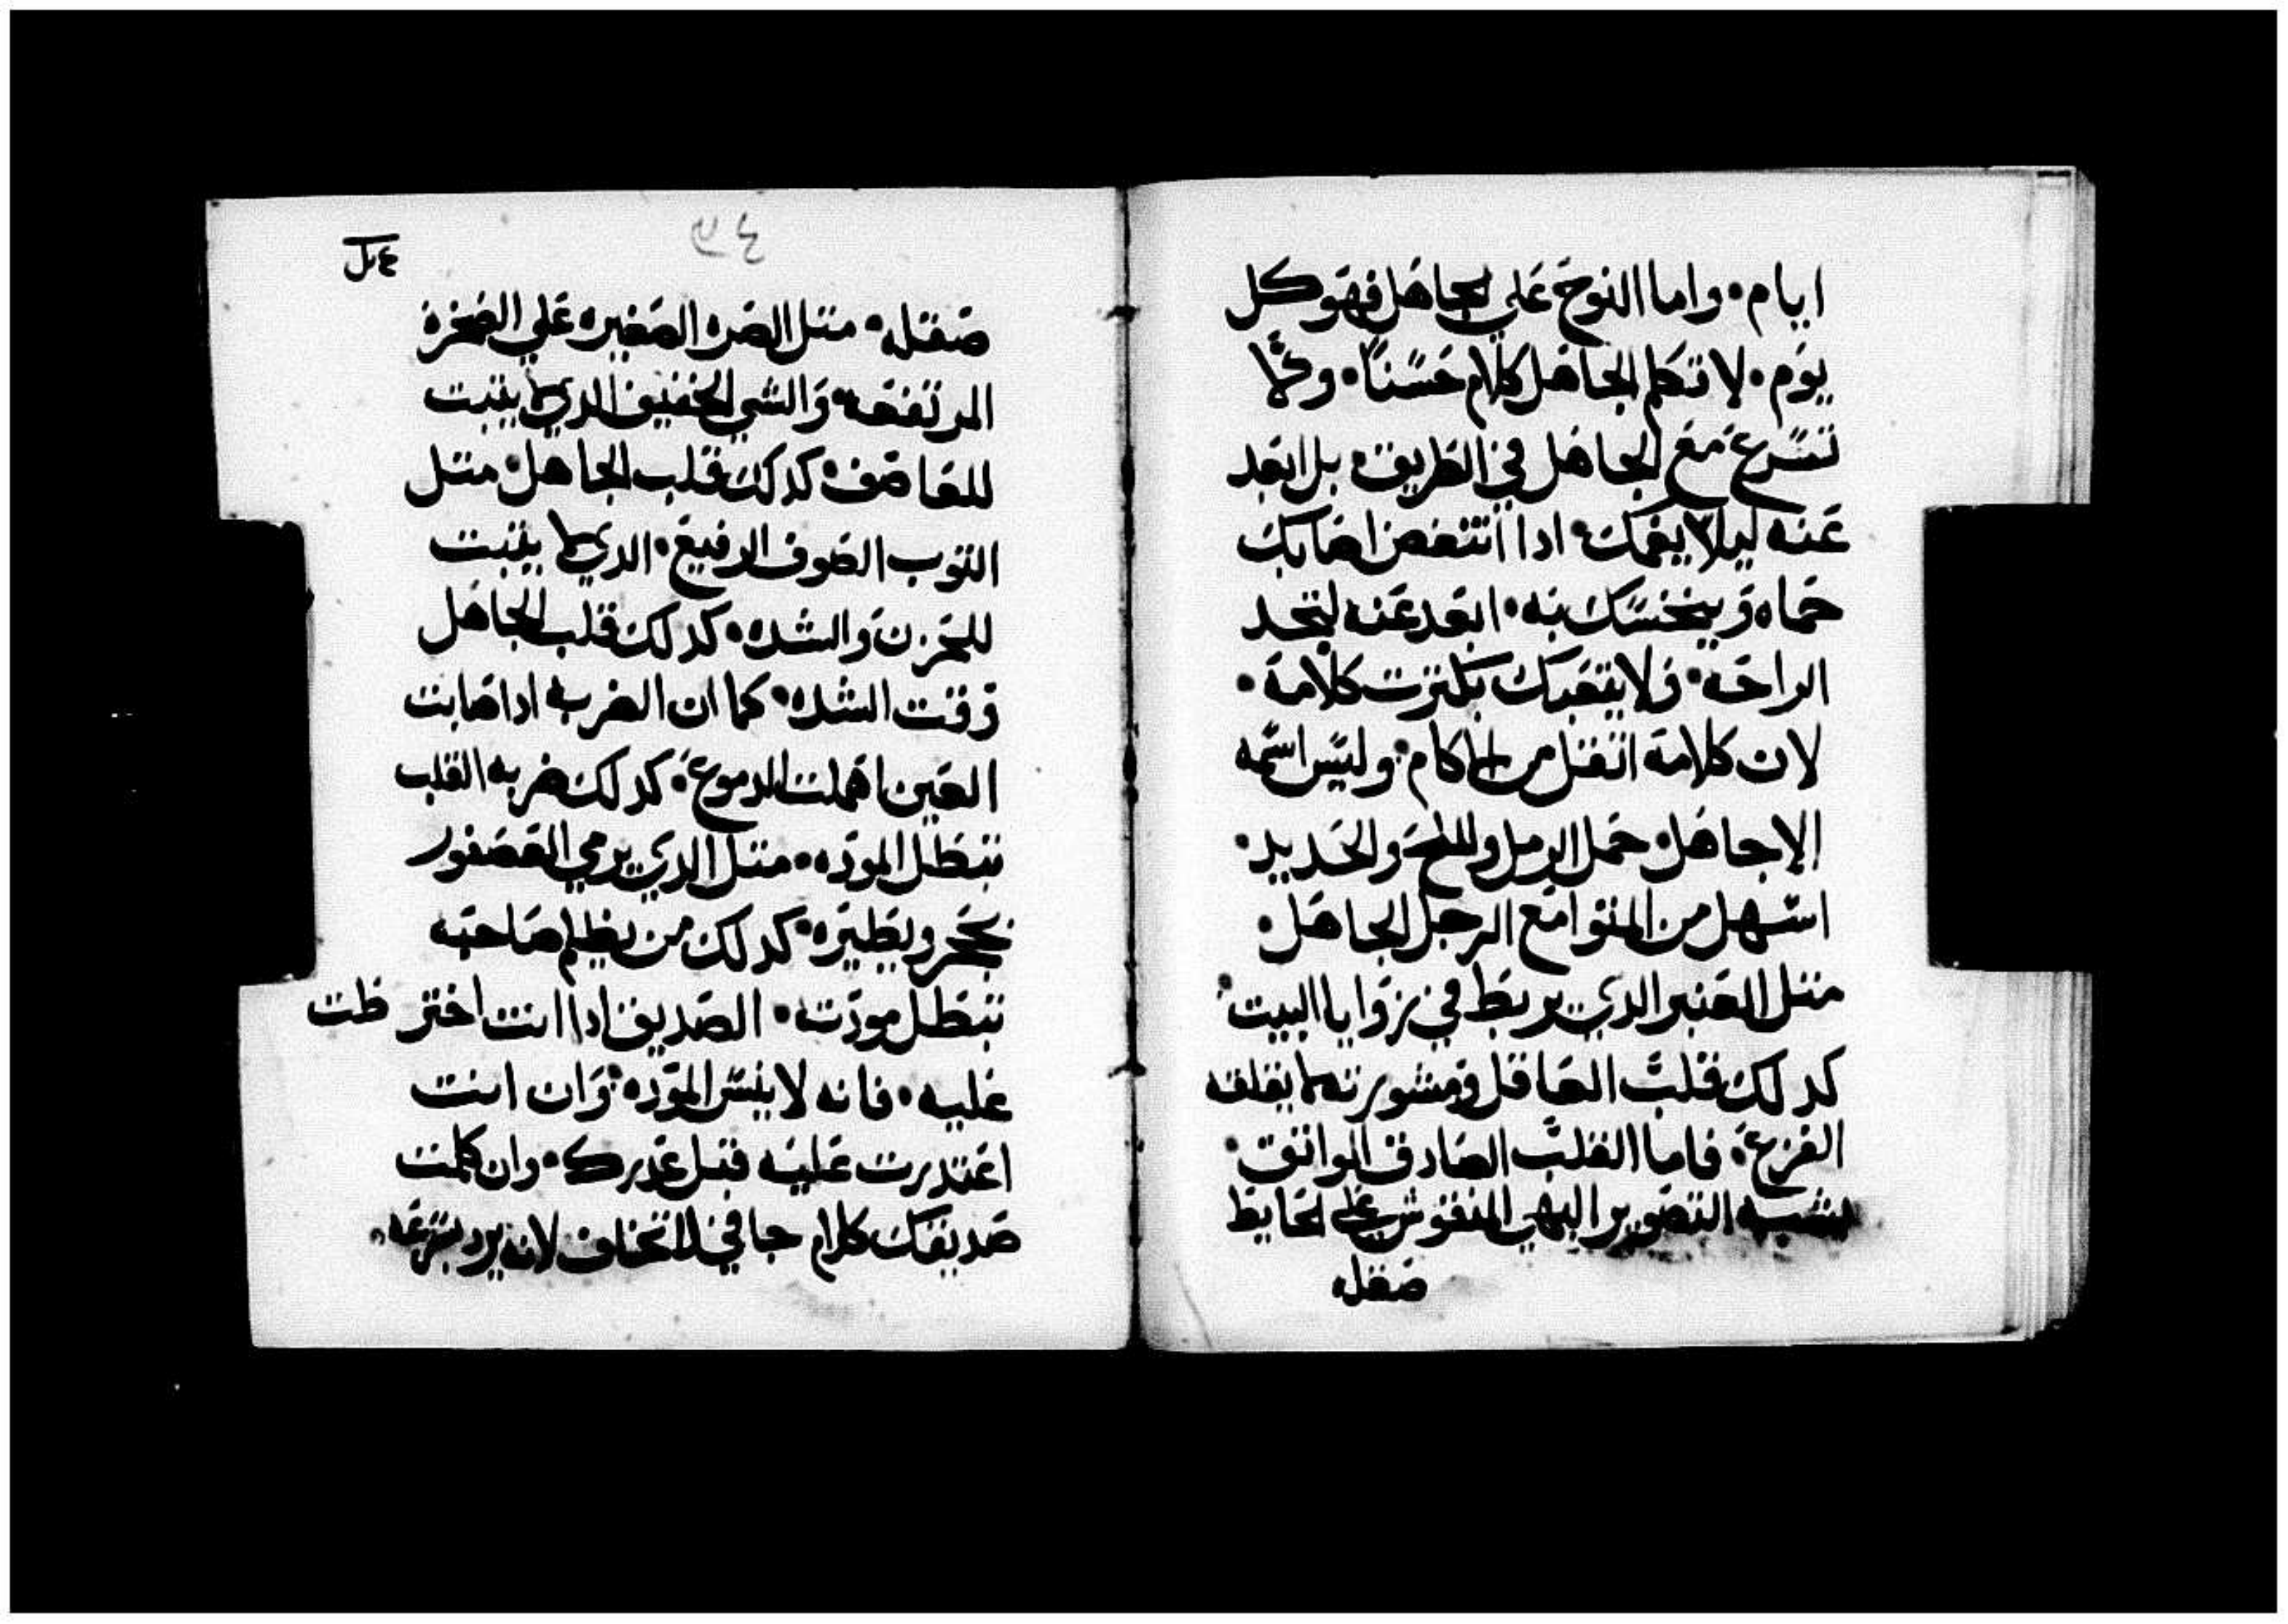 ايام • واما النوح علي الجاهل فهو كل
يوم • لا تكلم الجاهل كلام حسناً • ولا
تسرع مع الجاهل في الطريق • بل ابعد
عنه ليلا يغمك • ادا انتفض اصابك
حماه وينخسك به • ابعد عنه لتجد
الراحه • ولا يتعبك بكترت كلامه •
لان كلامه اتقل من الاكام • وليس اسمه
الا جاهل • حمل الرمل والملح والحديد •
اسهل من المتوامع الرجل الجاهل •
متل العنبر الدي يربط في زوايا البيت •
كدلك قلب العاقل ومشورته لا يقلقه
الفزع • فاما القلب الصادق الواتق •
يشبه التصوير البهي المنقوش علي الحايط
صقله
٤ىل
صقله • متل الصره الصغيره علي الصخرة
المرتفعه • والشي الخفيف الدي لا يتبت
للعاصف • كدلك قلب الجاهل • متل
التوب الصوف الرفيع • الدي لا يتبت
للحزن والشده • كدلك قلب الجاهل
وقت الشده • كما ان الضربه ادا صابت
العين اهملت الدموع • كدلك ضربه القلب
تبطل الموده • متل الدي يرمي العصفور
بحجر ويطيره • كدلك من يظلم صاحبه
تبطل مودته • الصديق ادا انت اختر ظت
عليه • فانه لا ينس الموده • وان انت
اعتدرت عليه قبل عدرك • وان كلمت
صديقك كلام جافي لا تخاف لانه يرد بسرعه •